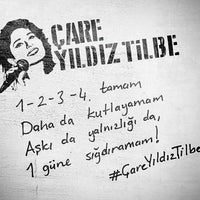 ÇARE
YILDIZ TİLBE
1-2-3-4. tamam
Daha da kutlayamam
Aşkı da yalnızlığı da,
1 güne sığdıramam!
#ÇareYıldızTilbe